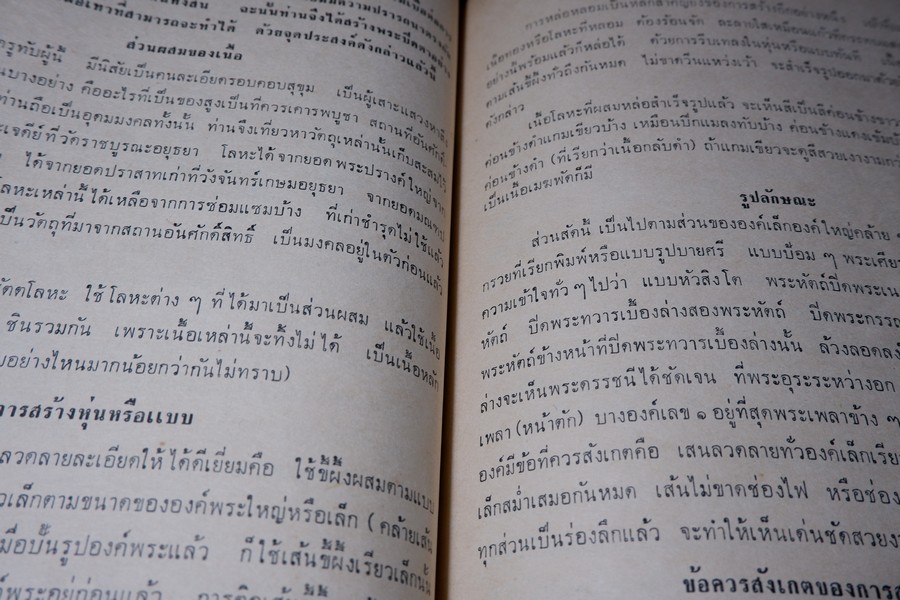 ส่วนผสมของเนื้อ
ครูทับผู้นี้ มีนิสัยเป็นคนละเอียดรอบคอบสุขุม เป็นผู้เสาะแสวงหาสิ่ง
บางอย่าง คืออะไรที่เป็นของสูงเป็นที่ควรเคารพบูชา สถานที่อันศักดิ์สิ
ท่านถือเป็นอุดมมงคลทั้งนั้น ท่านจึงเที่ยวหาวัตถุเหล่านั้นเก็บสะสมไว้
เจดีย์ที่วัดราชบูรณะอยุธยา โลหะได้จากยอดพระปรางค์ใหญ่จาก
ได้จากยอดปราสาทเก่าที่วังจันทร์เกษมอยุธยา จากยอดมณฑป
โลหะเหล่านี้ได้เหลือจากการซ่อมแซมบ้าง ที่เก่าชำรุดไม่ใช้แล้ว
เป็นวัตถุที่มาจากสถานอันศักดิ์สิทธิ์ เป็นมงคลอยู่ในตัวก่อนแล้ว
สัตตโลหะ ใช้โลหะต่าง ๆ ที่ได้มาเป็นส่วนผสม แล้วใช้เนื้อ
ชินรวมกัน เพราะเนื้อเหล่านี้จะทิ้งไม่ได้ เป็นเนื้อหลัก
อย่างไหนมากน้อยกว่ากันไม่ทราบ)
การสร้างหุ่นหรือแบบ
ลวดลายละเอียดให้ได้ดีเยี่ยมคือ ใช้ขี้ผึ้งผสมตามแบบ
เล็กตามขนาดขององค์พระใหญ่หรือเล็ก (คล้ายเส้น
มื่อปั้นรูปองค์พระแล้ว ก็ใช้เส้นขี้ผึ้งเรียวเล็กนั้น
พระอยู่ก่อนแล้ว
การหล่อหลอมเป็นหลักสำคัญยิ่งของการสร้างที่
เนื้อทองหรือโลหะที่หลอม ต้องร้อนจัด
อย่างนี้พร้อมแล้วก็หล่อได้ ด้วยการรีบเทลงในหุ่นหรือแบบทันที
ตามเส้นขี้ผึ้งทั่วถึงกันหมด ไม่ขาดวิ่นแหว่งเว้า จะสำเร็จรูปออกมา
ดังกล่าว
เนื้อโลหะที่ผสมหล่อสำเร็จรูปแล้ว จะเห็นสีเป็นสีค่อนข้างขาว
ค่อนข้างดำแกมเขียวบ้าง เหมือนปีกแมลงทับบ้าง ค่อนข้างแดงเข้ม
ค่อนข้างดำ (ที่เรียกว่าเนื้อกลับดำ) ถ้าแกมเขียวจะดูสีสวยงามมาก
เป็นเนื้อเมฆพัดก็มี
รูปลักษณะ
ส่วนสัดนี้ เป็นไปตามส่วนขององค์เล็กองค์ใหญ่คล้าย
กรวยที่เรียกพิมพ์หรือแบบรูปบายศรี แบบป้อม ๆ พระเศีย
ความเข้าใจทั่ว ๆ ไปว่า แบบหัวสิงโต พระหัตถ์ปิดพระเน
หัตถ์ ปิดพระทวารเบื้องล่างสองพระหัตถ์ ปิดพระกรรณ
พระหัตถ์ข้างหน้าที่ปิดพระทวารเบื้องล่างนั้น ล้วงลอดลง
ล่างจะเห็นพระดรรชนีได้ชัดเจน ที่พระอุระระหว่างอก
เพลา (หน้าตัก) บางองค์เลข ๑ อยู่ที่สุดพระเพลาข้าง ๆ
องค์มีข้อที่ควรสังเกตคือ เสนลวดลายทั่วองค์เล็กเรีย
เล็กสม่ำเสมอกันหมด เส้นไม่ขาดช่องไฟ หรือช่อง
ทุกส่วนเป็นร่องลึกแล้ว จะทำให้เห็นเด่นชัดสวยง
ข้อควรสังเกตของการส